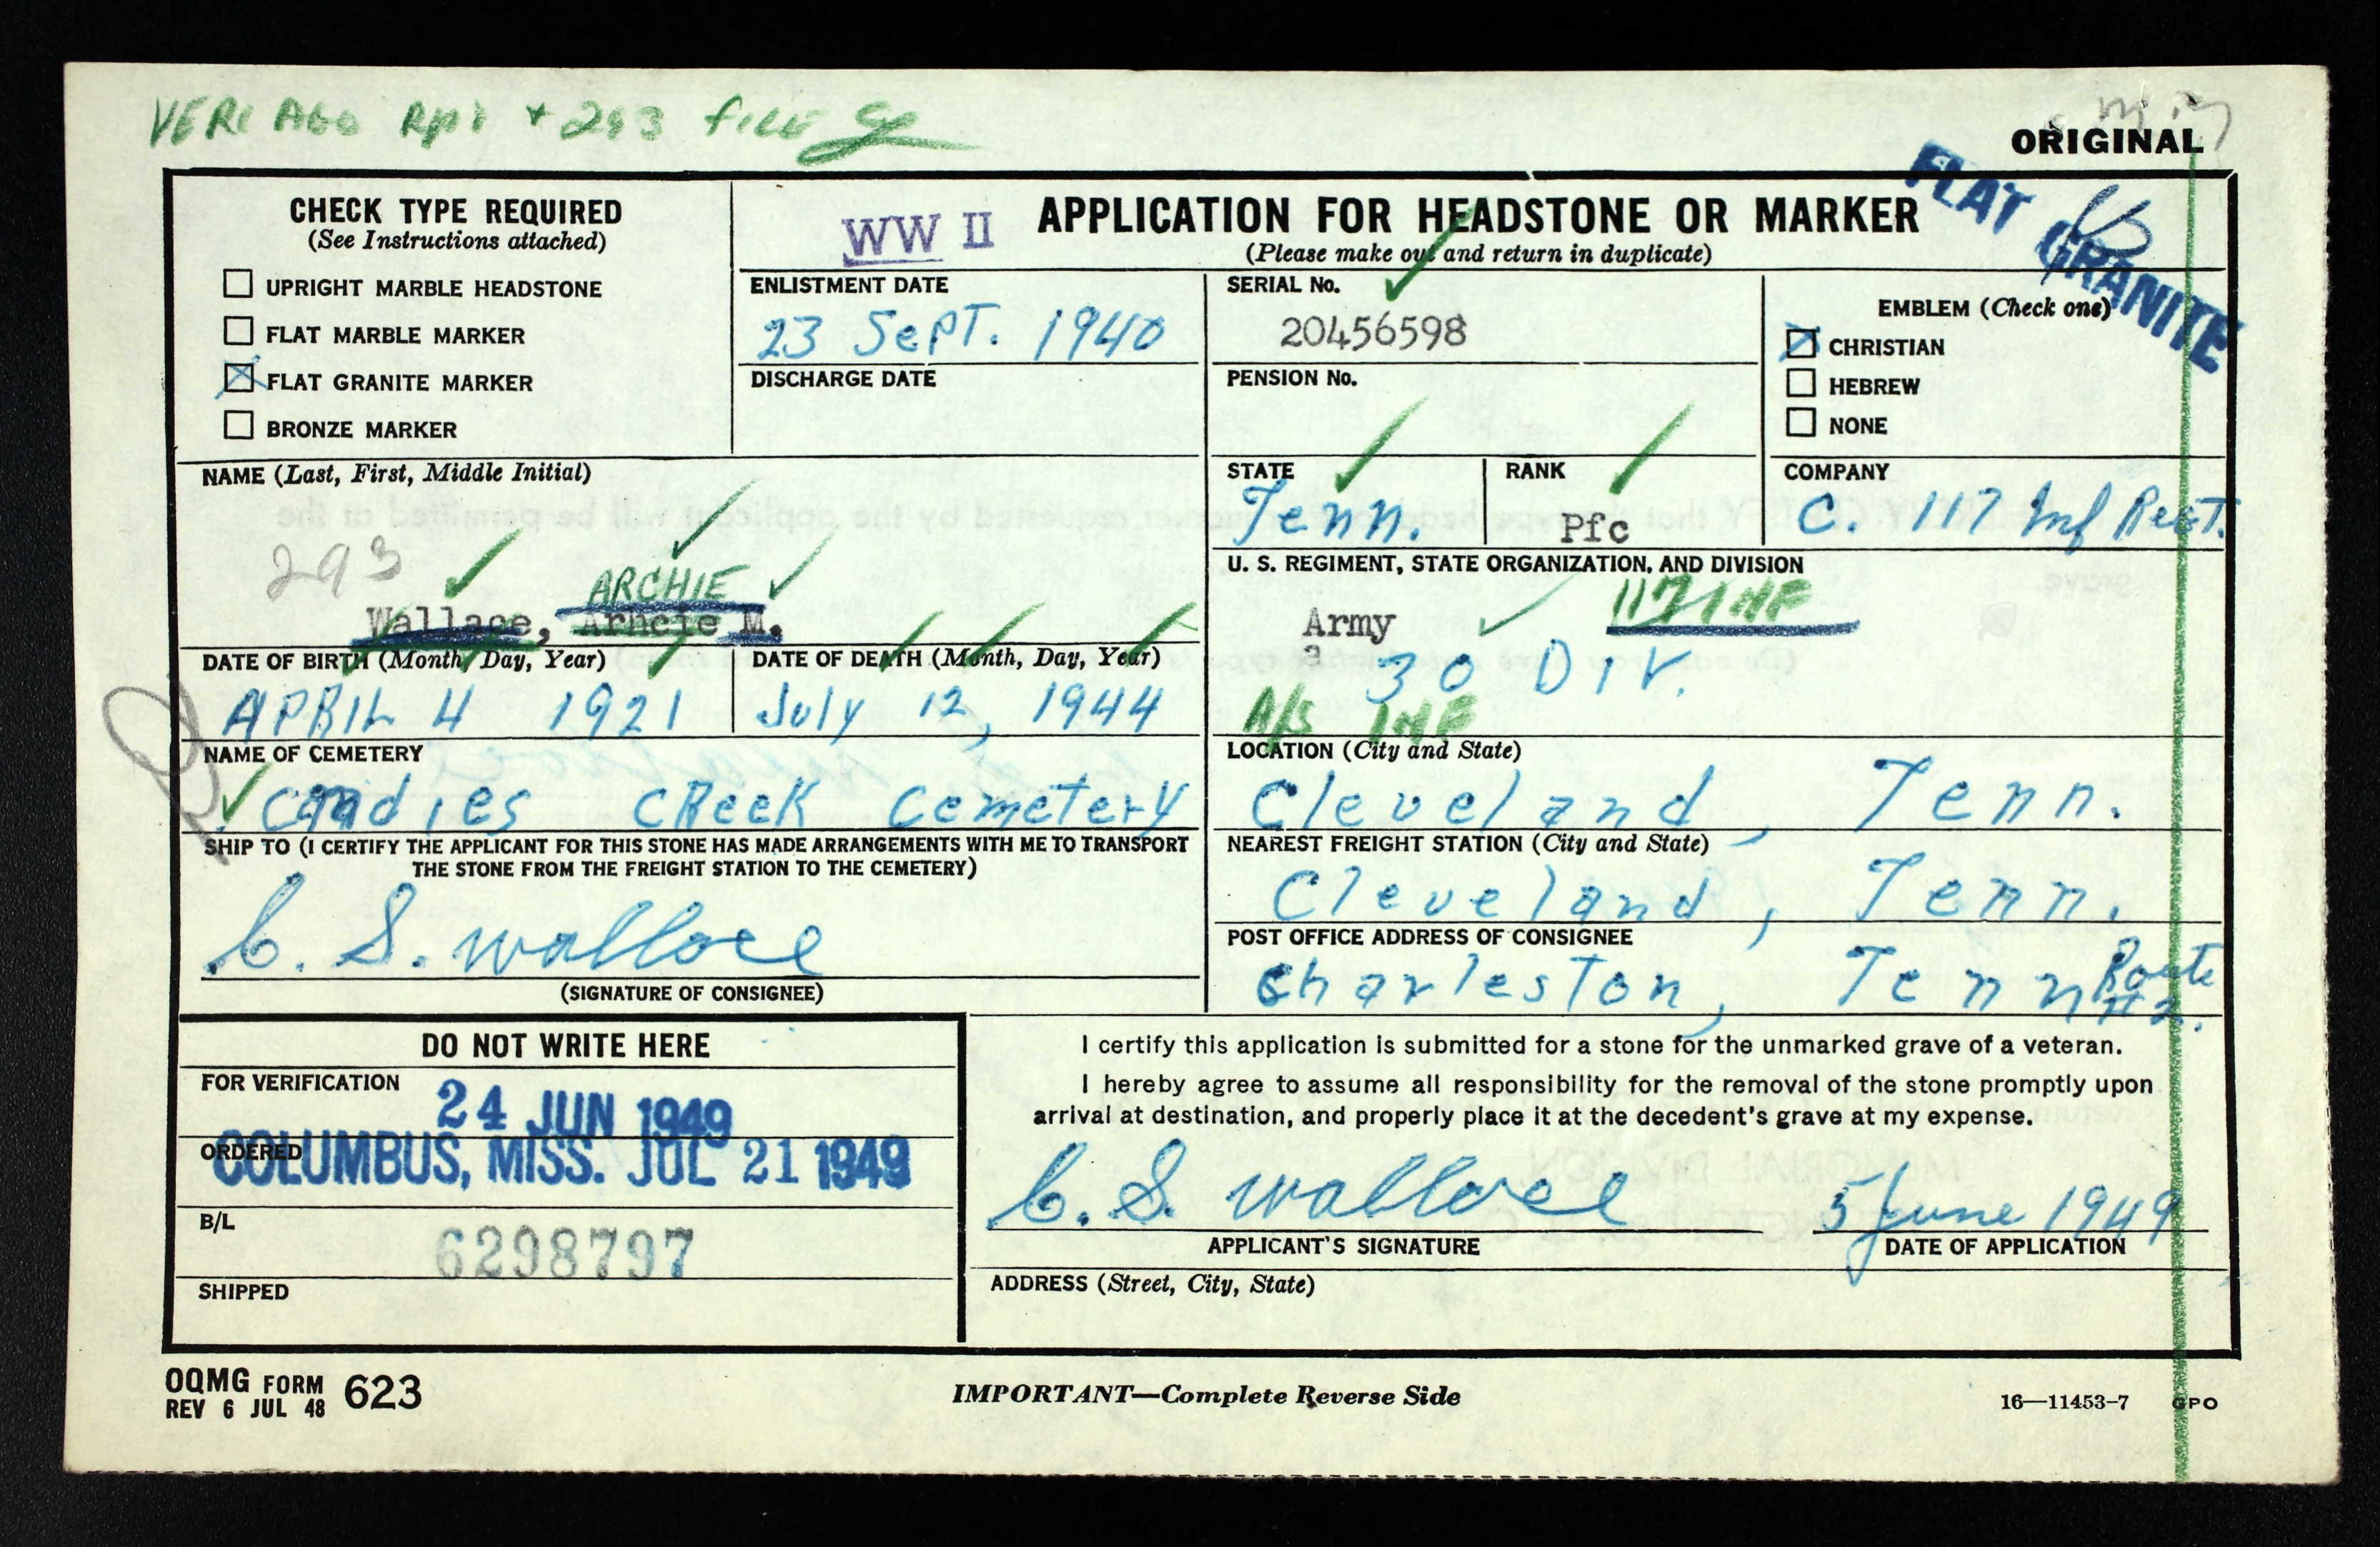 VERI AGO Rpt + 293 file
ORIGINAL
FLAT GRANITE
CHECK TYPE REQUIRED
(See Instructions attached)
UPRIGHT MARBLE HEADSTONE
FLAT MARBLE MARKER
FLAT GRANITE MARKER
BRONZE MARKER
WW II
APPLICATION FOR HEADSTONE OR MARKER
(Please make out and return in duplicate)
ENLISTMENT DATE
23 Sept. 1940
DISCHARGE DATE
SERIAL No.
20456598
PENSION No.
EMBLEM (Check one)
CHRISTIAN
HEBREW
NONE
NAME (Last, First, Middle Initial)
293
ARCHIE
Wallace, Arhcie M.
STATE
Tenn.
RANK
Pfc
COMPANY
C. 117 Inf Regt.
U. S. REGIMENT, STATE ORGANIZATION, AND DIVISION
117 INF
Army
a
30 DIV.
A/S INF
DATE OF BIRTH (Month, Day, Year)
APRIL 4 1921
DATE OF DEATH (Month, Day, Year)
July 12, 1944
NAME OF CEMETERY
Candies CReek Cemetery
LOCATION (City and State)
Cleveland, Tenn.
SHIP TO (I CERTIFY THE APPLICANT FOR THIS STONE HAS MADE ARRANGEMENTS WITH ME TO TRANSPORT
THE STONE FROM THE FREIGHT STATION TO THE CEMETERY)
C. S. Wallace
(SIGNATURE OF CONSIGNEE)
NEAREST FREIGHT STATION (City and State)
Cleveland, Tenn.
POST OFFICE ADDRESS OF CONSIGNEE
Charleston, Tenn Route
#2.
DO NOT WRITE HERE
FOR VERIFICATION
24 JUN 1949
ORDERED
COLUMBUS, MISS. JUL 21 1949
B/L
6298797
SHIPPED
I certify this application is submitted for a stone for the unmarked grave of a veteran.
I hereby agree to assume all responsibility for the removal of the stone promptly upon
arrival at destination, and properly place it at the decedent's grave at my expense.
C. S. Wallace
5 June 1949
APPLICANT'S SIGNATURE
DATE OF APPLICATION
ADDRESS (Street, City, State)
OQMG FORM 623
REV 6 JUL 48
IMPORTANT—Complete Reverse Side
16—11453-7 GPO